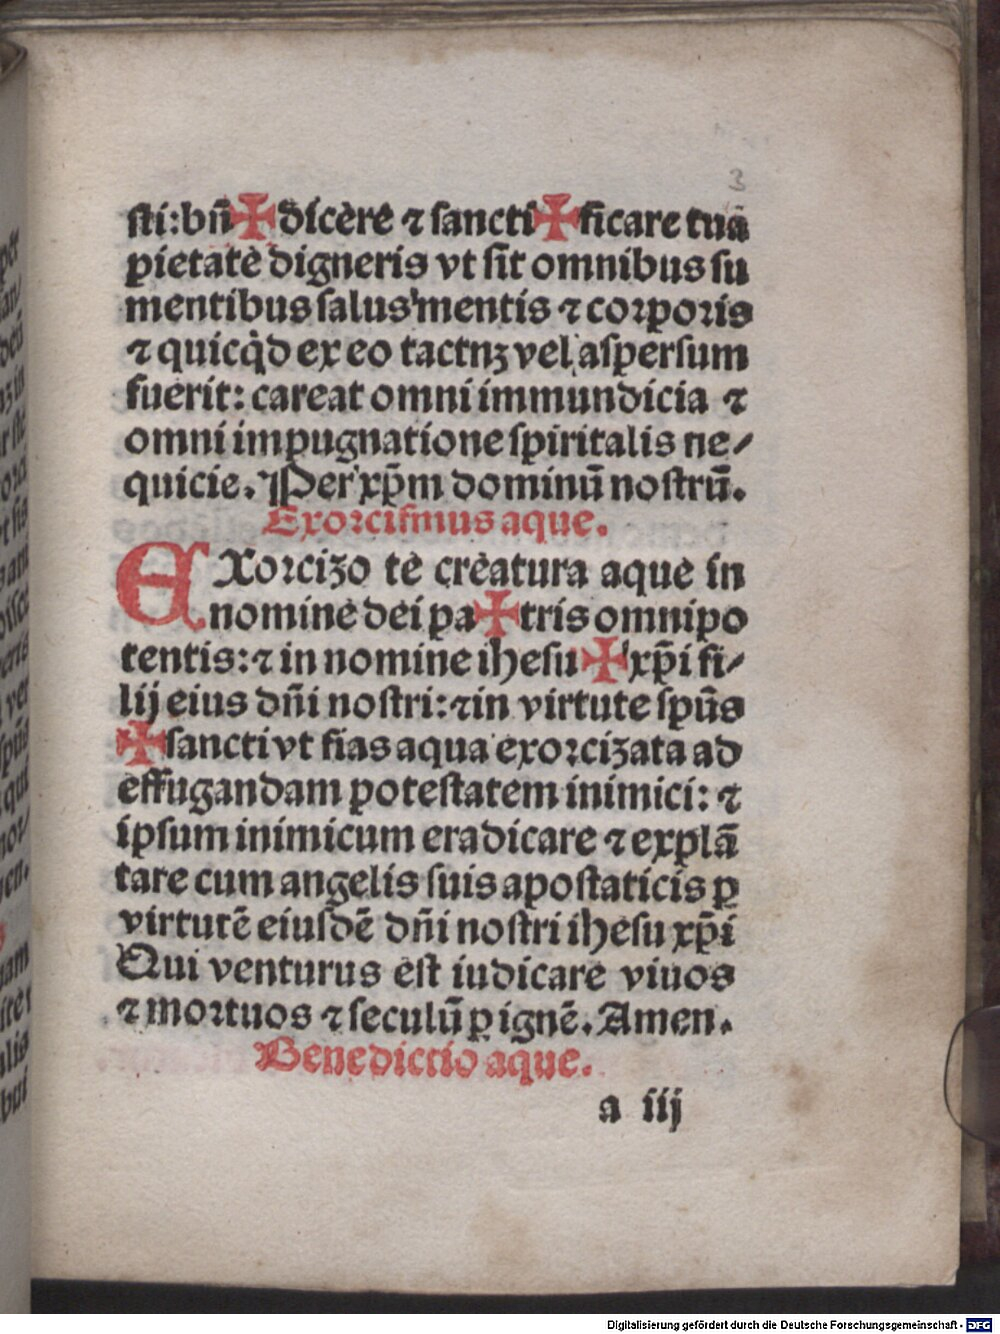 3
sti:bn̄✠dicere ⁊ sancti✠ficare tuā
pietate digneris vt sit omnibus su
mentibus salus mentis ⁊ corporis
⁊ quicq̇d ex eo tactuꝫ vel aspersum
fuerit: careat omni immundicia ⁊
omni impugnatione spiritalis ne⸗
quicie. Per xp̄m dominū nostrū.
Exorcismus aque.
EXorcizo te creatura aque in
nomine dei pa✠tris omnipo
tentis: ⁊ in nomine ihesu✠xp̄i fi⸗
lij eius dn̄i nostri: ⁊in virtute spūs
✠sancti vt fias aqua exorcizata ad
effugandam potestatem inimici: ⁊
ipsum inimicum eradicare ⁊ explā
tare cum angelis suis apostaticis ꝑ
virtutē eiusdē dn̄i nostri ihesu xp̄i
Qui venturus est iudicare viuos
⁊ mortuos ⁊ seculū ꝑ ignē. Amen.
Benedictio aque.
a iij
Digitalisierung gefördert durch die Deutsche Forschungsgemeinschaft - DFG